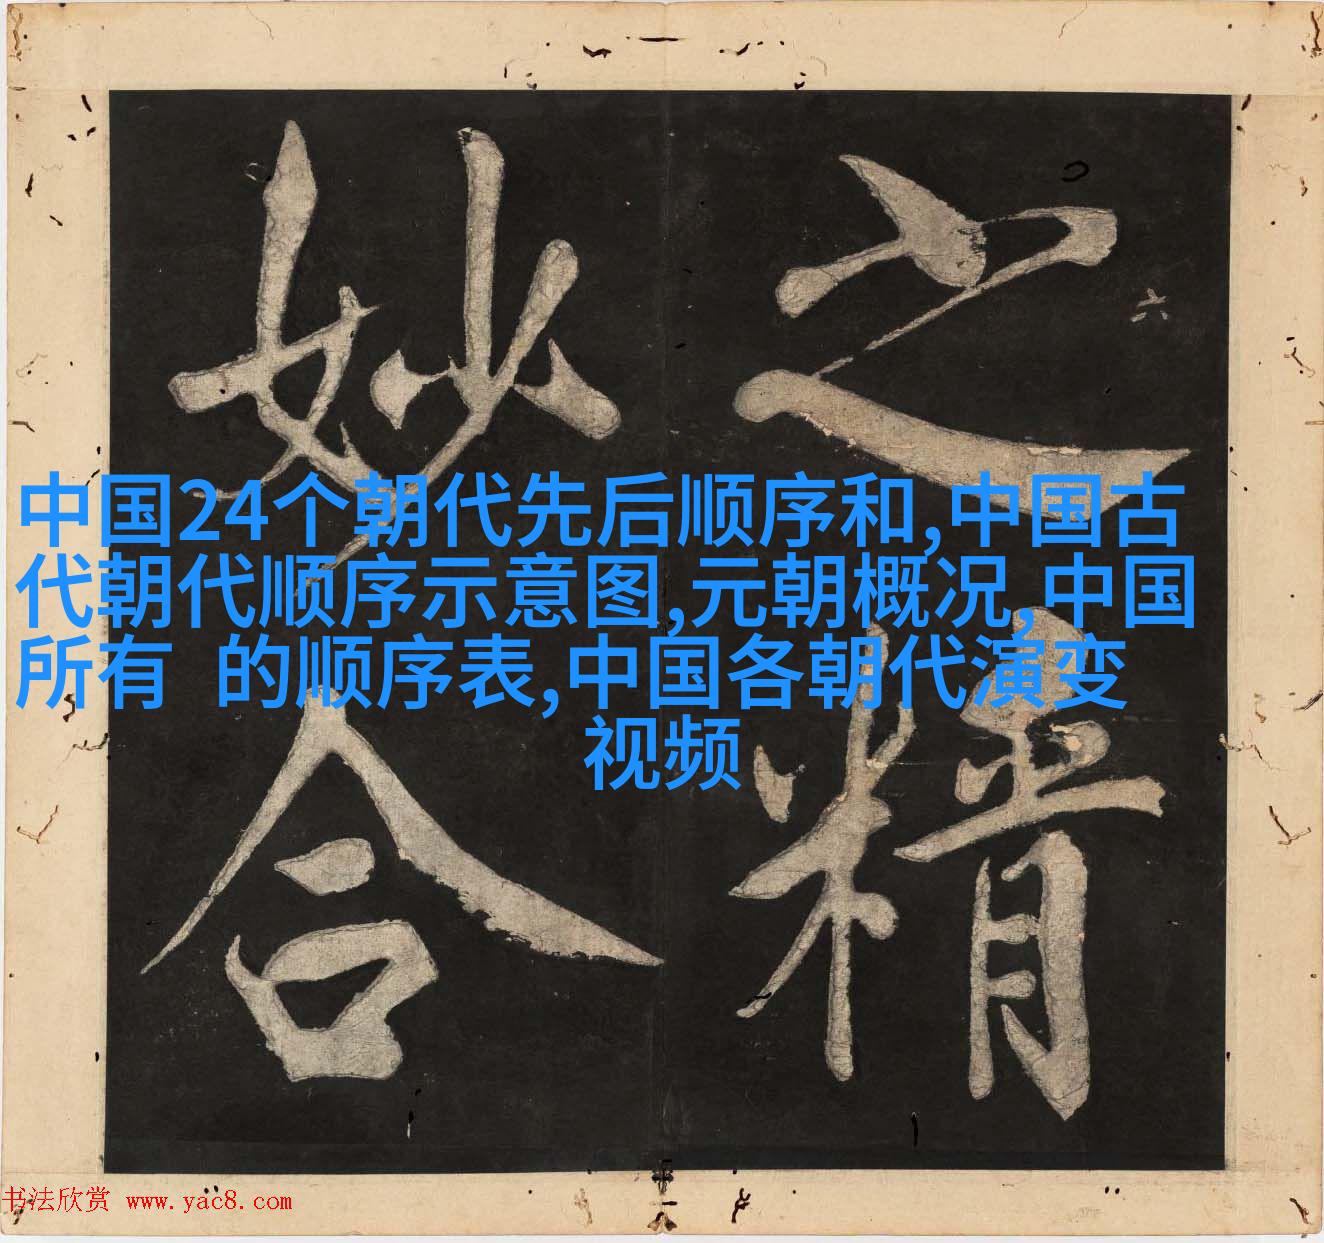 之精
妙合
六
中国24个朝代先后顺序和,中国古
代朝代顺序示意图,元朝概况,中国
所有 的顺序表,中国各朝代演变
视频
书法欣赏 www.yac8.com